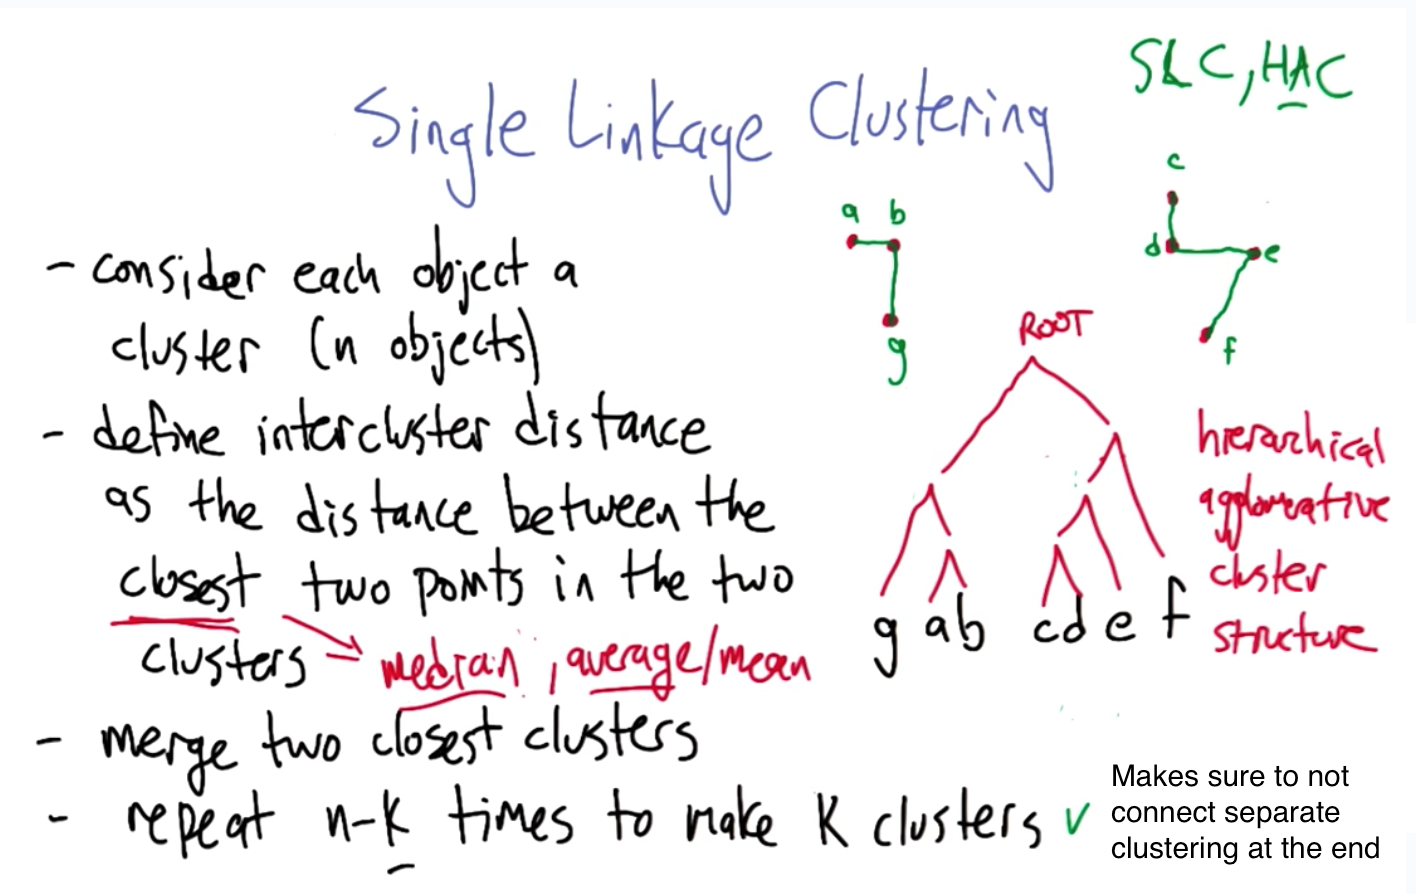 SLC, HAC
Single Linkage Clustering
- consider each object a
cluster (n objects)
- define intercluster distance
as the distance between the
closest two points in the two
clusters → median, average/mean
- merge two closest clusters
- repeat n-k times to make K clusters ✓
a b
g
c
d e
f
ROOT
g a b c d e f
hierarchical
agglomerative
cluster
structure
Makes sure to not
connect separate
clustering at the end